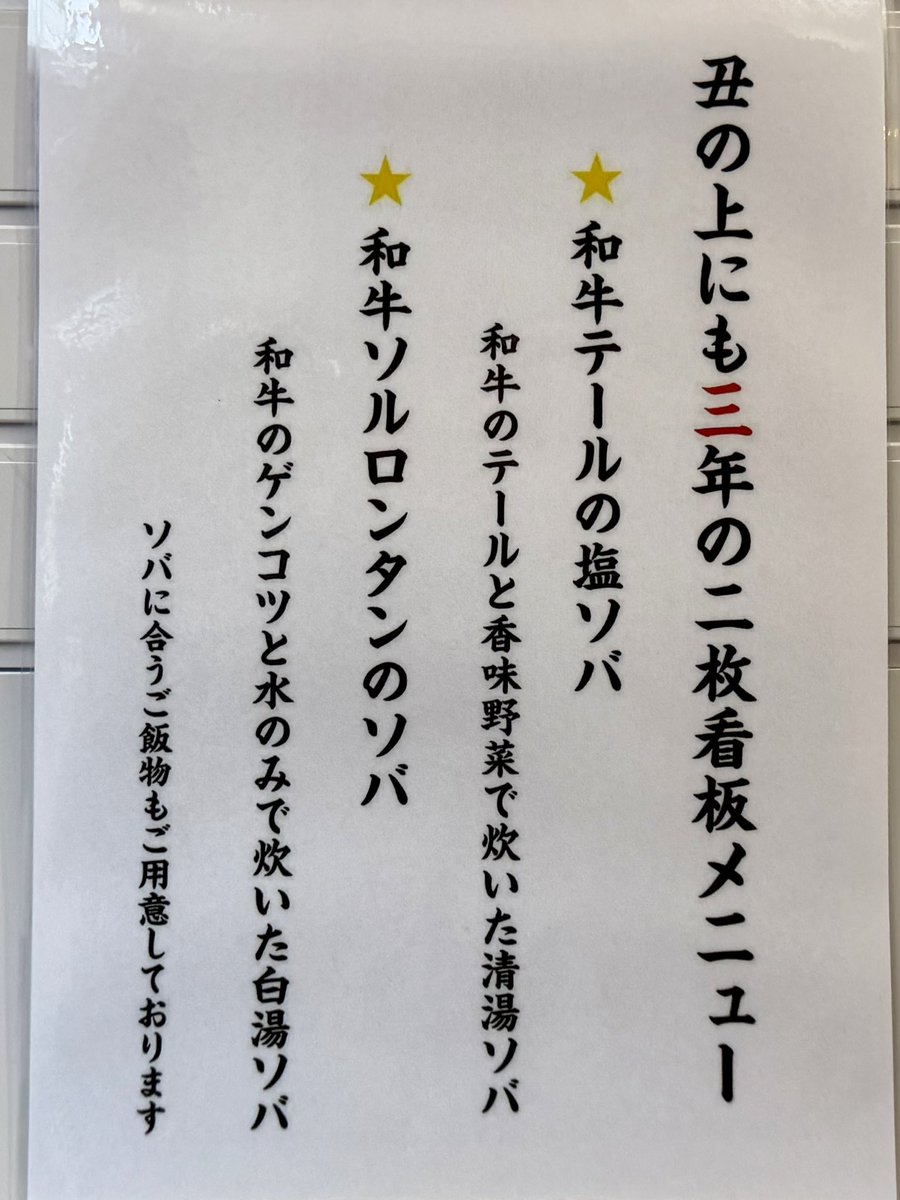 丑の上にも三年の二枚看板メニュー
★和牛テールの塩ソバ
和牛のテールと香味野菜で炊いた清湯ソバ
★和牛ソルロンタンのソバ
和牛のゲンコツと水のみで炊いた白湯ソバ
ソバに合うご飯物もご用意しております